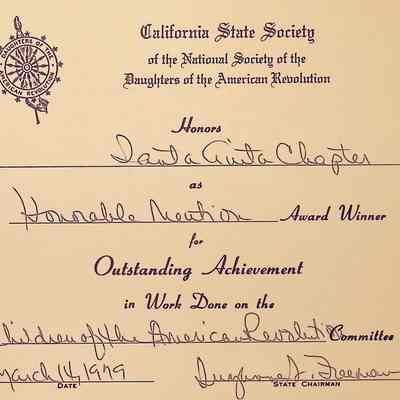 California State Society
of the National Society of the
Daughters of the American Revolution
DAUGHTERS OF THE
AMERICAN REVOLUTION
Honors
Santa Anita Chapter
as
Honorable Mention Award Winner
for
Outstanding Achievement
in Work Done on the
Children of the American Revolution Committee
March 14, 1979
DATE
Freeman
STATE CHAIRMAN